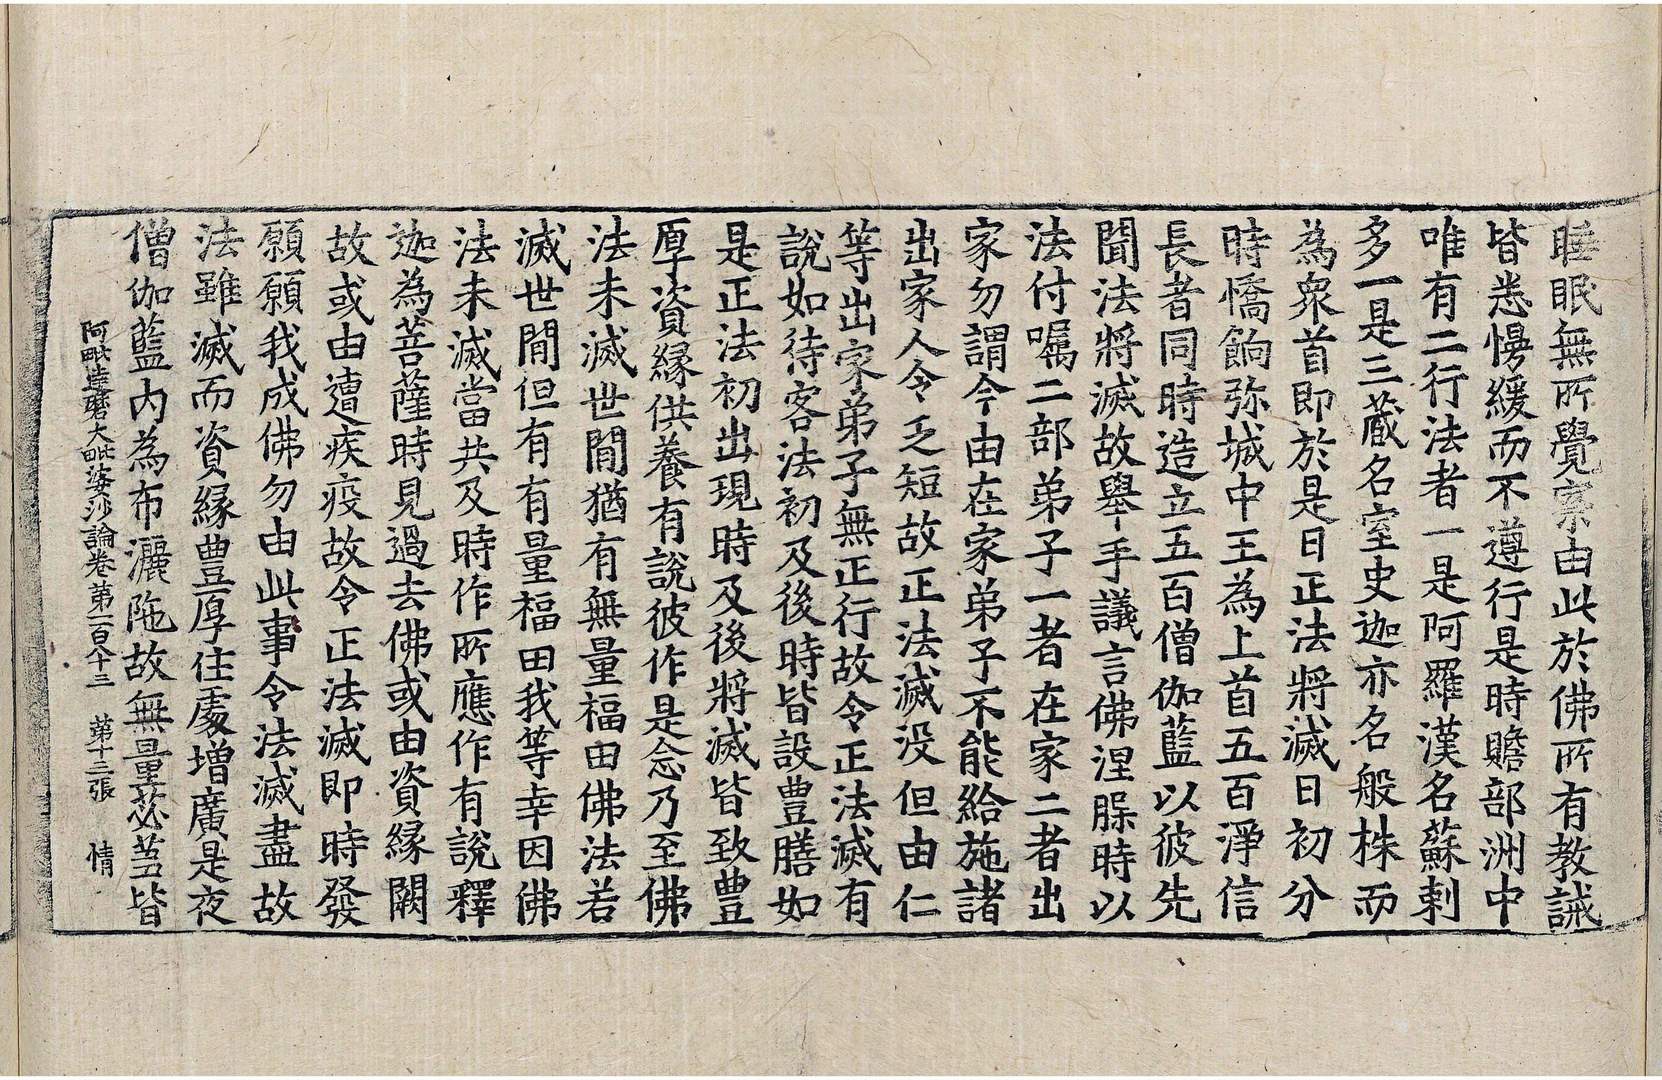 睡眠無所覺察由此於佛所有教誡
皆悉慢緩而不遵行是時贍部洲中
唯有二行法者一是阿羅漢名蘇剌
多一是三藏名室史迦亦名般株而
為衆首即於是日正法將滅日初分
時憍餉弥城中王為上首五百淨信
長者同時造立五百僧伽藍以彼先
聞法將滅故舉手議言佛涅脲時以
法付嘱二部弟子一者在家二者出
家勿謂今由在家弟子不能給施諸
出家人令乏短故正法滅没但由仁
等出家弟子無正行故令正法滅有
說如待客法初及後時皆設豊膳如
是正法初出現時及後將滅皆致豊
厚資緣供養有說彼作是念乃至佛
法未滅世間猶有無量福田佛法若
滅世間但有有量福田我等幸因佛
法未滅當共及時作所應作有說釋
迦為菩薩時見過去佛或由資緣闕
故或由遭疾疫故令正法滅即時發
願願我成佛勿由此事令法滅盡故
法雖滅而資緣豊厚住處增廣是夜
僧伽藍內為布灑陁故無量苾芻皆
阿毗達磨大毗婆沙論卷第一百八十三 第十三張 情